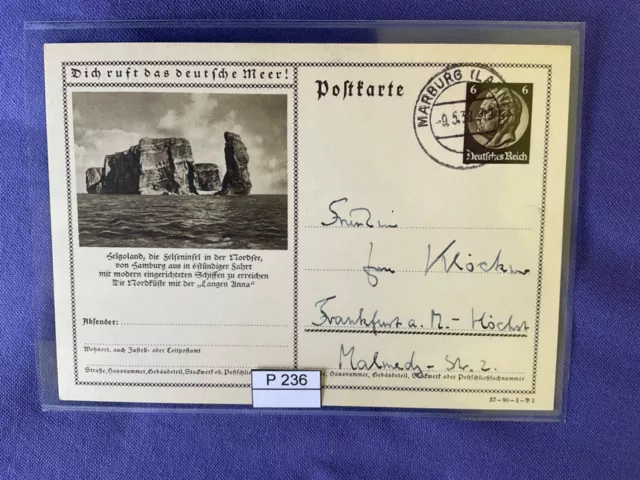 Dich ruft das deutsche Meer!
Helgoland, die Felseninsel in der Nordsee,
von Hamburg aus in 6stündiger Fahrt
mit modern eingerichteten Schiffen zu erreichen
Die Nordküste mit der „Langen Anna“
Absender:
Wohnort, auch Zustell- oder Leitpostamt
Straße, Hausnummer, Gebäudeteil, Stockwerk od. Postschließf
Postkarte
MARBURG (LA
-9.5.3
6 6
Deutsches Reich
Klöckner
Frankfurt a. M. - Höchst
Malmedy-Str. 2.
Hausnummer, Gebäudeteil, Stockwerk oder Postschließfachnummer
37-90-1-B1
P 236